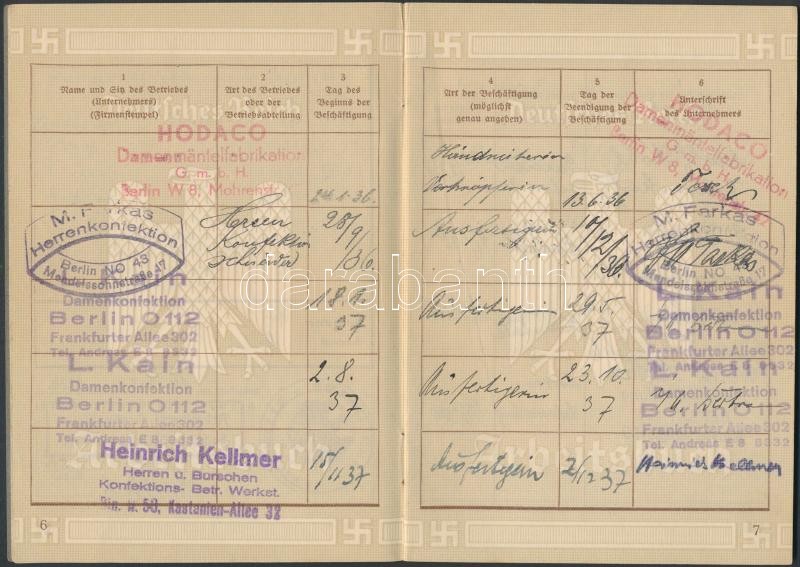 1
Name und Sitz des Betriebes
(Unternehmers)
(Firmenstempel)
2
Art des Betriebes
oder der
Betriebsabteilung
3
Tag des
Beginns der
Beschäftigung
HODACO
Damenmäntelfabrikation
G. m. b. H.
Berlin W 8, Mohrenstr.
24.1.36.
M. Farkas
Herrenkonfektion
Berlin NO 43
Mendelssohnstraße 17
Herren
Konfektion
Schneider
28/
9/
36.
L. Kain
Damenkonfektion
Berlin O 112
Frankfurter Allee 302
Tel. Andreas E 8 9332
37
L. Kain
Damenkonfektion
Berlin O 112
Frankfurter Allee 302
Tel. Andreas E 8 9332
2.8.
37
Heinrich Kellmer
Herren u. Burschen
Konfektions- Betr. Werkst.
Bln. N. 58, Kastanien-Allee 32
15/
11 37
6
4
Art der Beschäftigung
(möglichst
genau angeben)
5
Tag der
Beendigung der
Beschäftigung
6
Unterschrift
des Unternehmers
Handnäherin
13.6.36
HODACO
Damenmäntelfabrikation
G. m. b. H.
Berlin W 8, Mohrenstr.
Ausfertigerin
10/
12/
36.
M. Farkas
Herrenkonfektion
Berlin NO 43
Mendelssohnstraße 17
Ausfertigerin
29.5.
37
L. Kain
Damenkonfektion
Berlin O 112
Frankfurter Allee 302
Tel. Andreas E 8 9332
Ausfertigerin
23.10.
37
L. Kain
Damenkonfektion
Berlin O 112
Frankfurter Allee 302
Tel. Andreas E 8 9332
Ausfertigerin
2/
12 37
Heinrich Kellmer
7
Deutsches Reich
Arbeitsbuch
darabanth